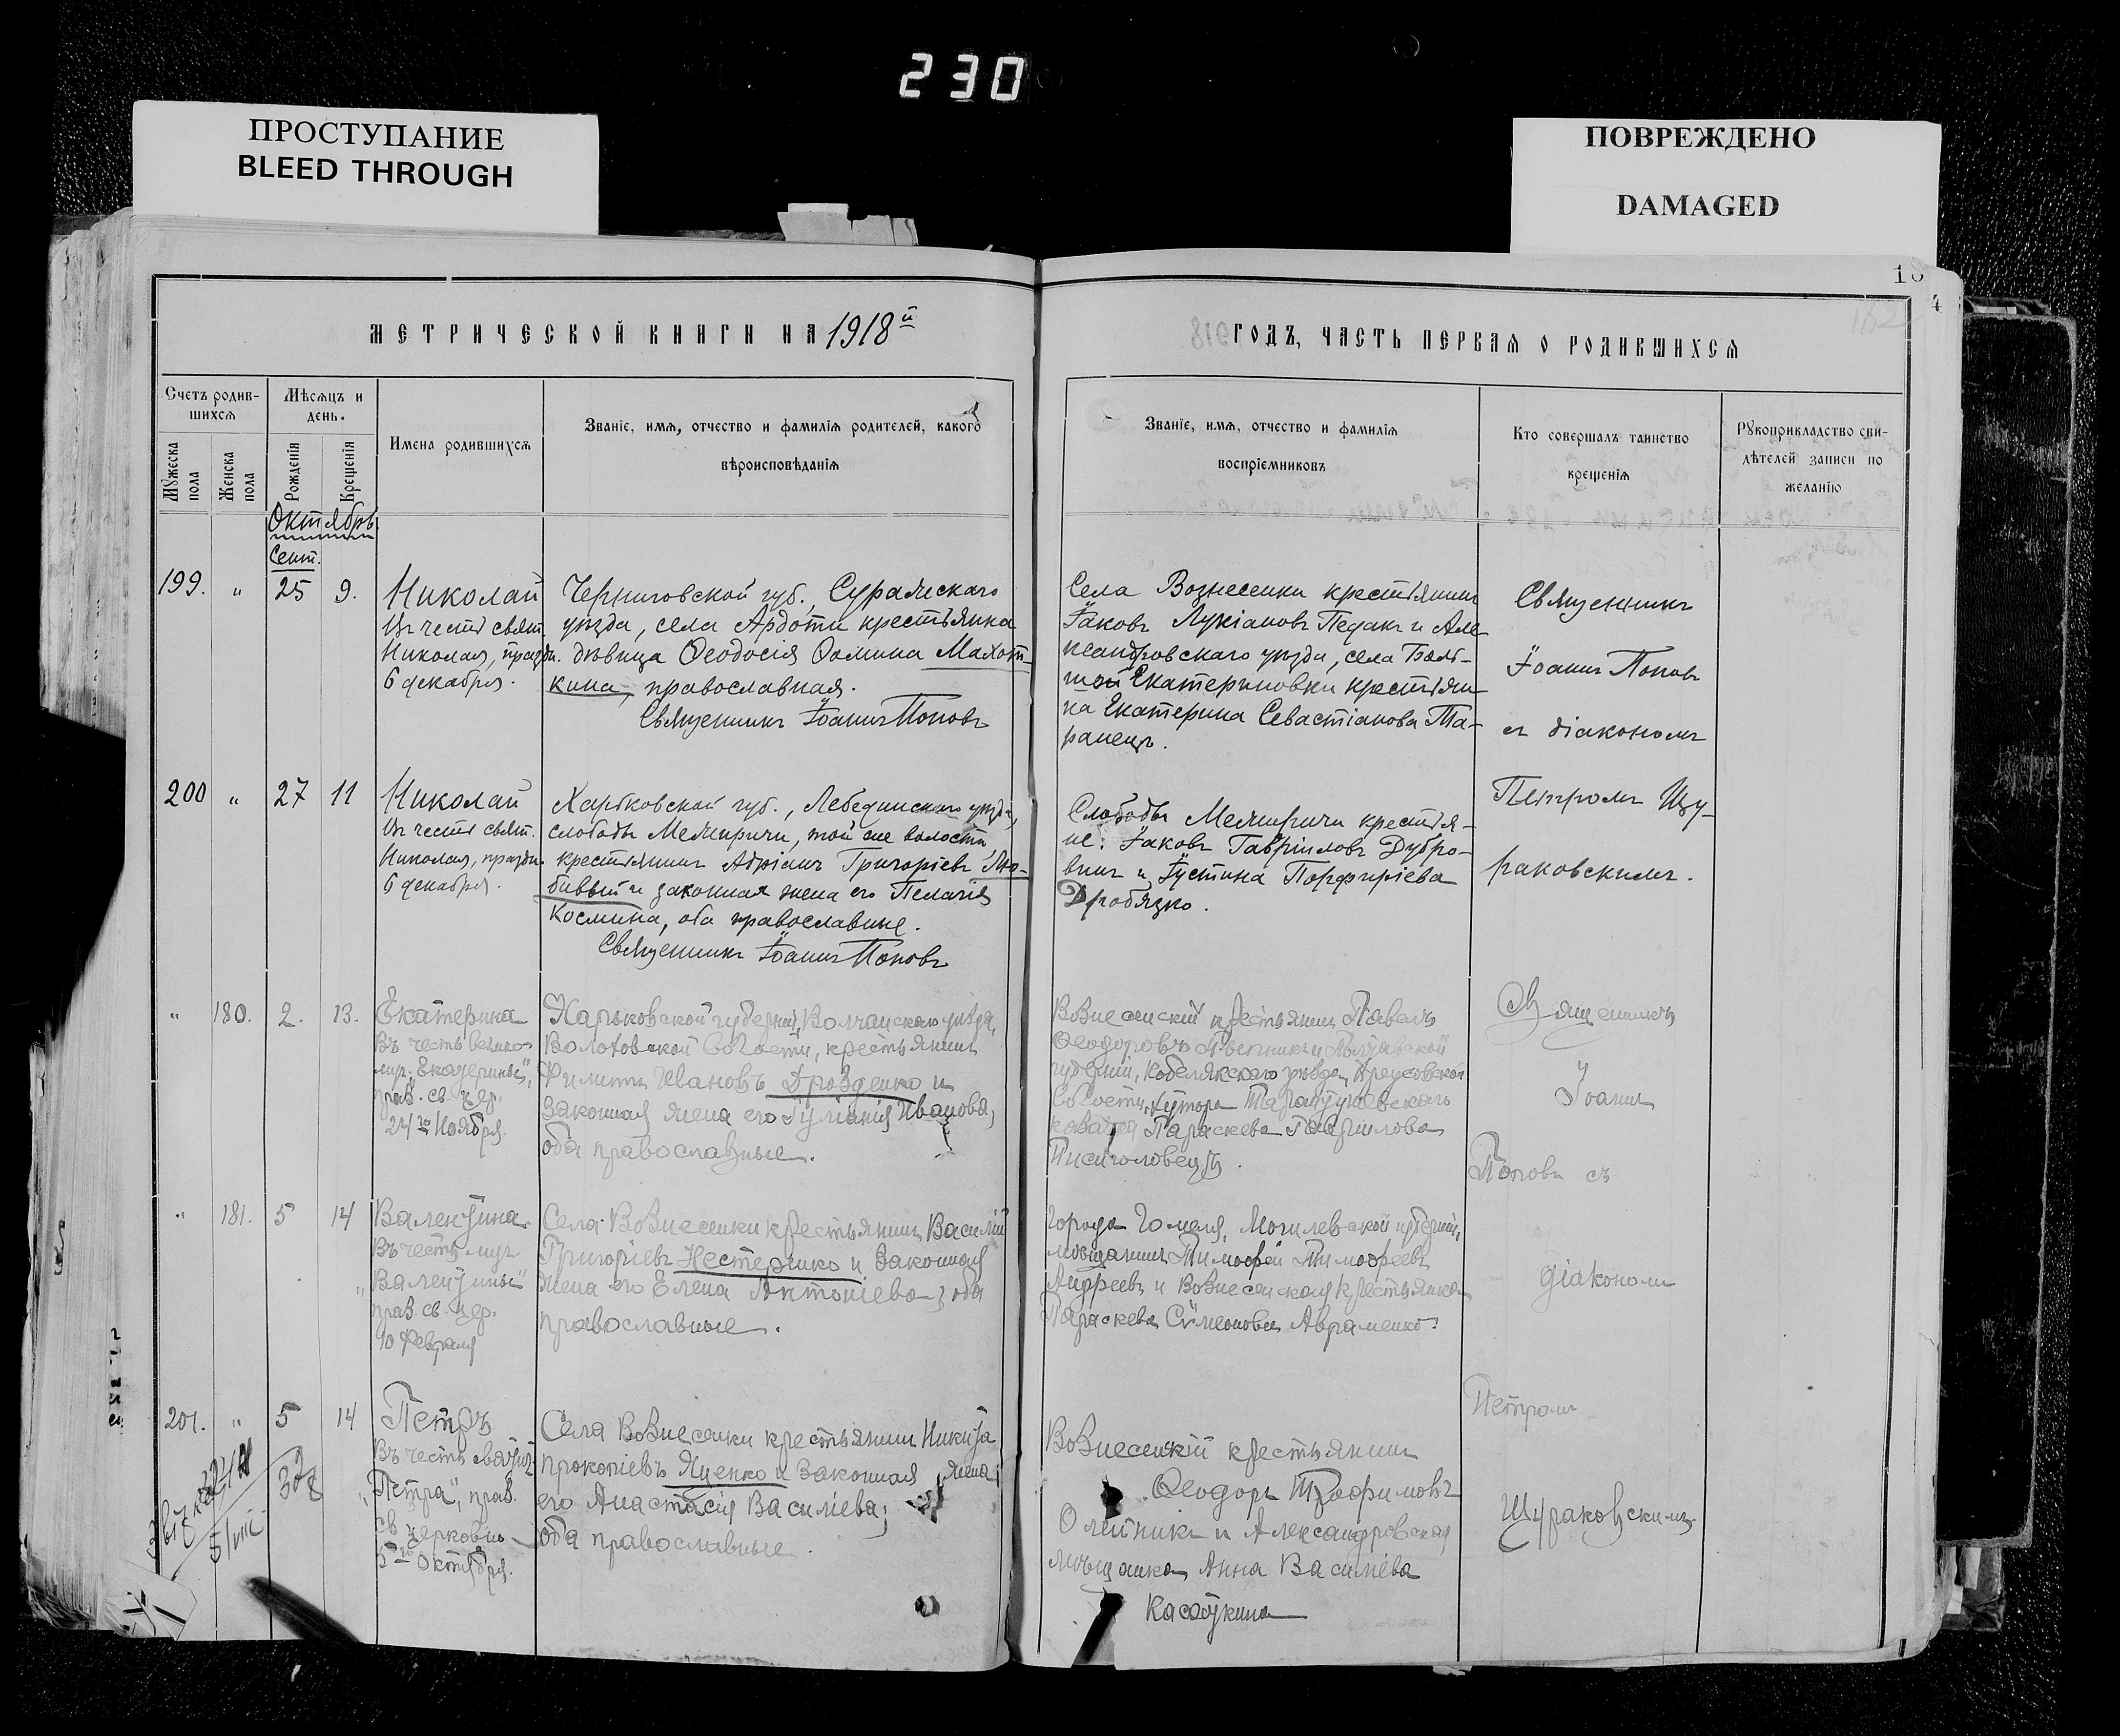 230
ПРОСТУПАНИЕ
BLEED THROUGH
ПОВРЕЖДЕНО
DAMAGED
МЕТРИЧЕСКОЙ КНИГИ НА 1918й
ГОДЪ, ЧАСТЬ ПЕРВАЯ О РОДИВШИХСЯ
Счетъ родив-
шихся
Мѣсяцъ и
день.
Мужеска пола
Женска пола
Рожденія
Крещенія
Имена родившихся
Званіе, имя, отчество и фамилія родителей, какого
вѣроисповѣданія
Званіе, имя, отчество и фамилія
воспріемниковъ
Кто совершалъ таинство
крещенія
Рукоприкладство сви-
дѣтелей записи по
желанію
Октябрь
Сент.
199. " 25 9.
Николай
Въ честь свят.
Николая, праздн.
6 декабря.
Черниговской губ., Суражскаго
уѣзда, села Ардоти крестьянка
дѣвица Ѳеодосія Ѳомина Махот-
кина, православная.
Священникъ Іоаннъ Поповъ
Села Вознесенки крестьянинъ
Іаковъ Лукіановъ Педакъ и Але-
ксандровскаго уѣзда, села Боль-
шой Екатериновки крестьян-
ка Екатерина Севастіанова Та-
ранецъ.
Священникъ
Іоаннъ Поповъ
съ діакономъ
Петромъ Щу-
раковскимъ.
200 " 27 11
Николай
Въ честь свят.
Николая, праздн.
6 декабря.
Харьковской губ., Лебединскаго уѣзда,
слободы Межиричи, той же волости
крестьянинъ Адріанъ Григоріевъ Лю-
бивый и законная жена его Пелагія
Космина, оба православные.
Священникъ Іоаннъ Поповъ
Слободы Межиричи крестья-
не: Іаковъ Гавріиловъ Дубро-
винъ и Іустина Порфиріева
Дробязко.
" 180. 2. 13.
Екатерина
Въ честь велико-
муч. "Екатерины",
праз. св. цер.
24го Ноября.
Харьковской губерніи, Волчанскаго уѣзда,
Волоховской волости, крестьянинъ
Филиппъ Ивановъ Дрозденко и
законная жена его Іуліанія Иванова,
оба православные.
Вознесенскій крестьянинъ Павелъ
Ѳеодоровъ и Полтавской
губерніи, Кобелякскаго уѣзда,
волости, хутора
Параскева Гавриилова
Священникъ
Іоаннъ
Поповъ съ
" 181. 5 14
Валентина
Въ честь муч.
"Валентины"
праз. св. цер.
10 Февраля
Села Вознесенки крестьянинъ Василій
Григоріевъ Нестеренко и законная
жена его Елена Антоніева, оба
православные.
Города Гомеля, Могилевской губерніи,
мѣщанинъ Тимоѳей Тимоѳеевъ
Андреевъ и Вознесенская крестьянка
Параскева Сѵмеоновна Авраменко.
діакономъ
Петромъ
201. " 5 14
Петръ
Въ честь святит.
"Петра", праз.
св церковью
5го Октября.
Села Вознесенки крестьянинъ Никита
Прокопіевъ Яценко и законная жена
его Анастасія Василіева;
оба православные.
Вознесенскій крестьянинъ
Ѳеодоръ Трофимовъ
Олейникъ и Александровская
мѣщанка Анна Василіева
Касаткина
Щураковскимъ.